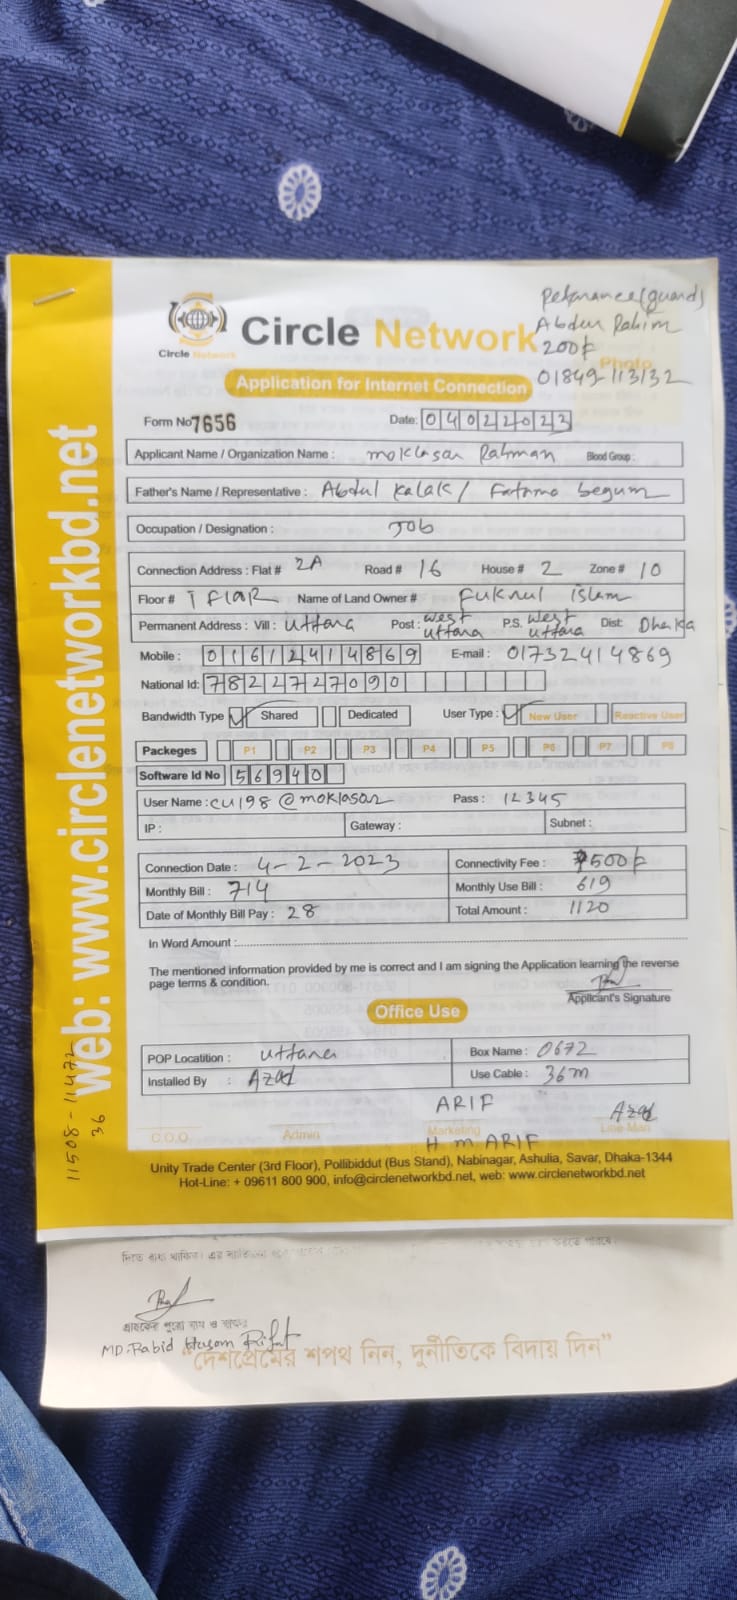 Peknance(guard)
Abdur Rahim
200৳
01849-113132
Circle Network
Circle Network
Photo
Application for Internet Connection
Form No 7656 Date: 04022023
Applicant Name / Organization Name : moklasar Rahman Blood Group :
Father's Name / Representative : Abdul Kalak / Fatama begum
Occupation / Designation : Job
Connection Address : Flat # 2A Road # 16 House # 2 Zone # 10
Floor # Name of Land Owner # Fuknul islam
Permanent Address : Vill : Uttara Post : west uttara P.S. west uttara Dist: Dhaka
Mobile : 01612414869 E-mail : 01732414869
National Id: 7822727090
Bandwidth Type Shared Dedicated User Type : New User Reactive User
Packeges P1 P2 P3 P4 P5 P6 P7 P8
Software Id No 56940
User Name : cu198@moklasar Pass : 12345
IP : Gateway : Subnet :
Connection Date : 4-2-2023 Connectivity Fee : 500৳
Monthly Bill : 714 Monthly Use Bill : 619
Date of Monthly Bill Pay : 28 Total Amount : 1120
In Word Amount :
The mentioned information provided by me is correct and I am signing the Application learning the reverse
page terms & condition.
Applicant's Signature
Office Use
POP Locatition : uttara Box Name : 0672
Installed By : Azad Use Cable : 36m
ARIF Azad
C.O.O Admin Marketing Line Man
H m ARIF
Unity Trade Center (3rd Floor), Pollibiddut (Bus Stand), Nabinagar, Ashulia, Savar, Dhaka-1344
Hot-Line: + 09611 800 900, info@circlenetworkbd.net, web: www.circlenetworkbd.net
web: www.circlenetworkbd.net
11508-11472
36
গ্রাহকের পুরো নাম ও স্বাক্ষর
MD. Rabid Hasom Rifat
"দেশপ্রেমের শপথ নিন, দুর্নীতিকে বিদায় দিন"